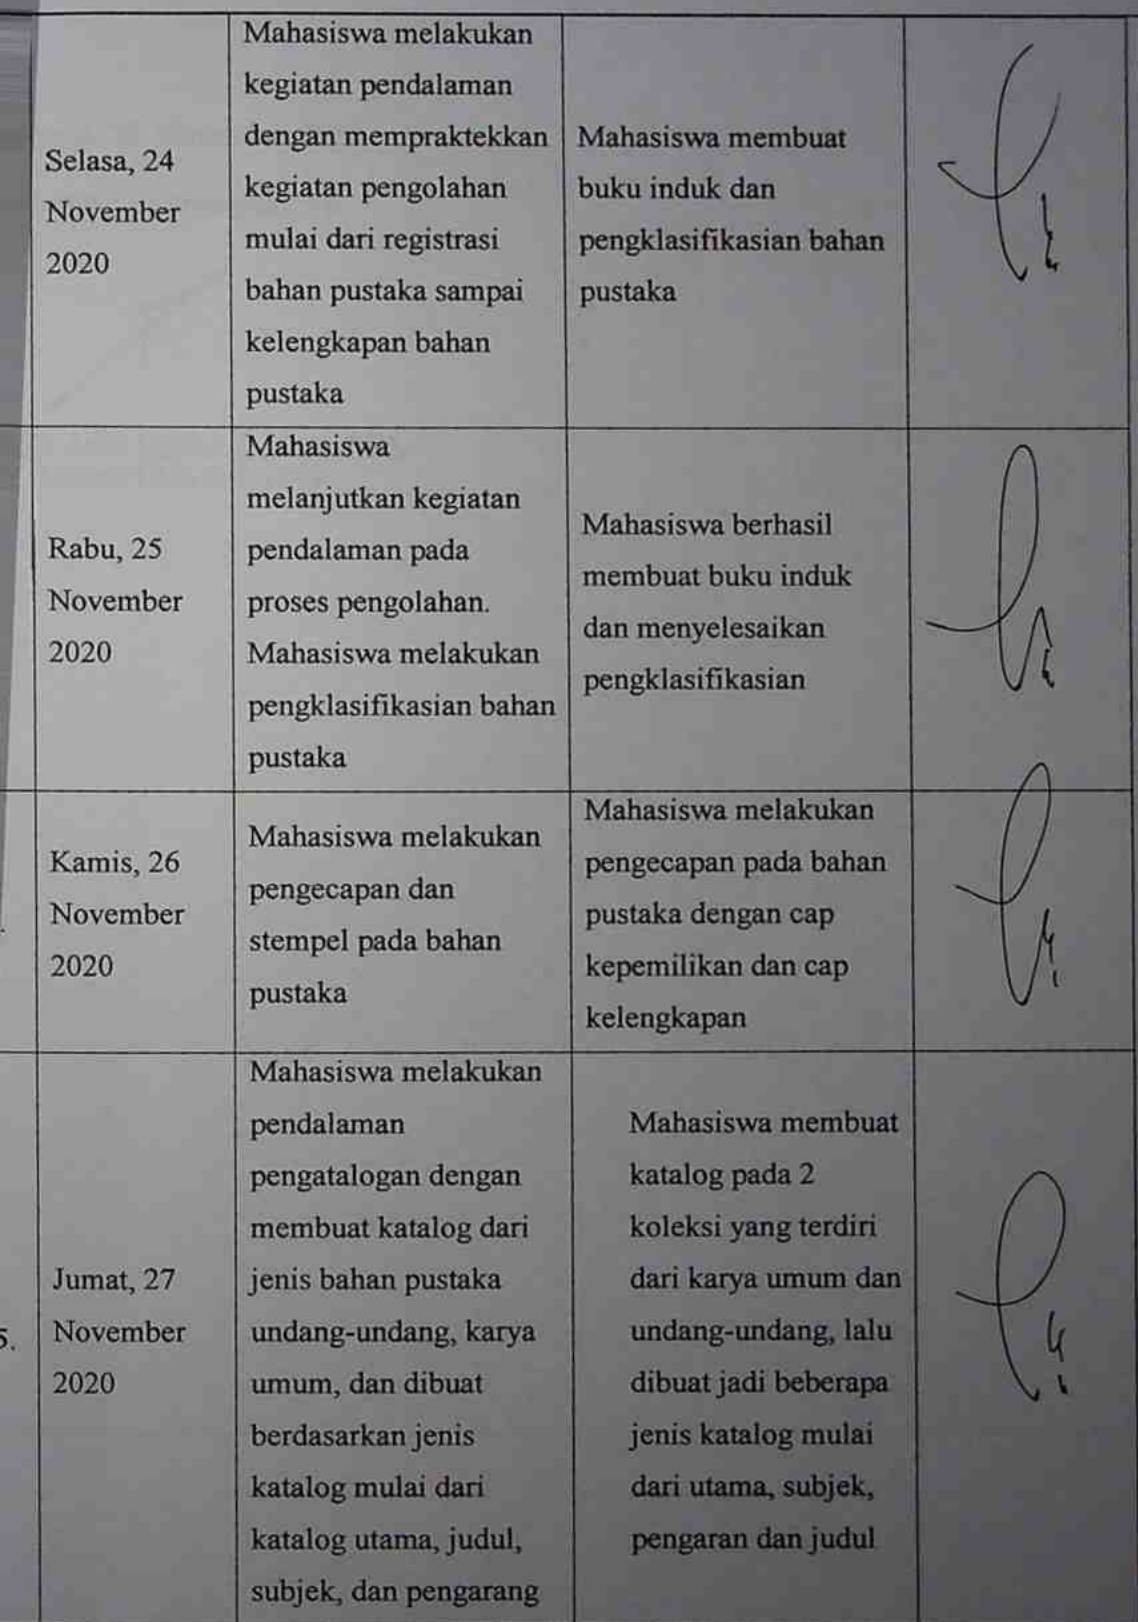 Selasa, 24
November
2020
Mahasiswa melakukan
kegiatan pendalaman
dengan mempraktekkan
kegiatan pengolahan
mulai dari registrasi
bahan pustaka sampai
kelengkapan bahan
pustaka
Mahasiswa membuat
buku induk dan
pengklasifikasian bahan
pustaka
Rabu, 25
November
2020
Mahasiswa
melanjutkan kegiatan
pendalaman pada
proses pengolahan.
Mahasiswa melakukan
pengklasifikasian bahan
pustaka
Mahasiswa berhasil
membuat buku induk
dan menyelesaikan
pengklasifikasian
Kamis, 26
November
2020
Mahasiswa melakukan
pengecapan dan
stempel pada bahan
pustaka
Mahasiswa melakukan
pengecapan pada bahan
pustaka dengan cap
kepemilikan dan cap
kelengkapan
5.
Jumat, 27
November
2020
Mahasiswa melakukan
pendalaman
pengatalogan dengan
membuat katalog dari
jenis bahan pustaka
undang-undang, karya
umum, dan dibuat
berdasarkan jenis
katalog mulai dari
katalog utama, judul,
subjek, dan pengarang
Mahasiswa membuat
katalog pada 2
koleksi yang terdiri
dari karya umum dan
undang-undang, lalu
dibuat jadi beberapa
jenis katalog mulai
dari utama, subjek,
pengaran dan judul